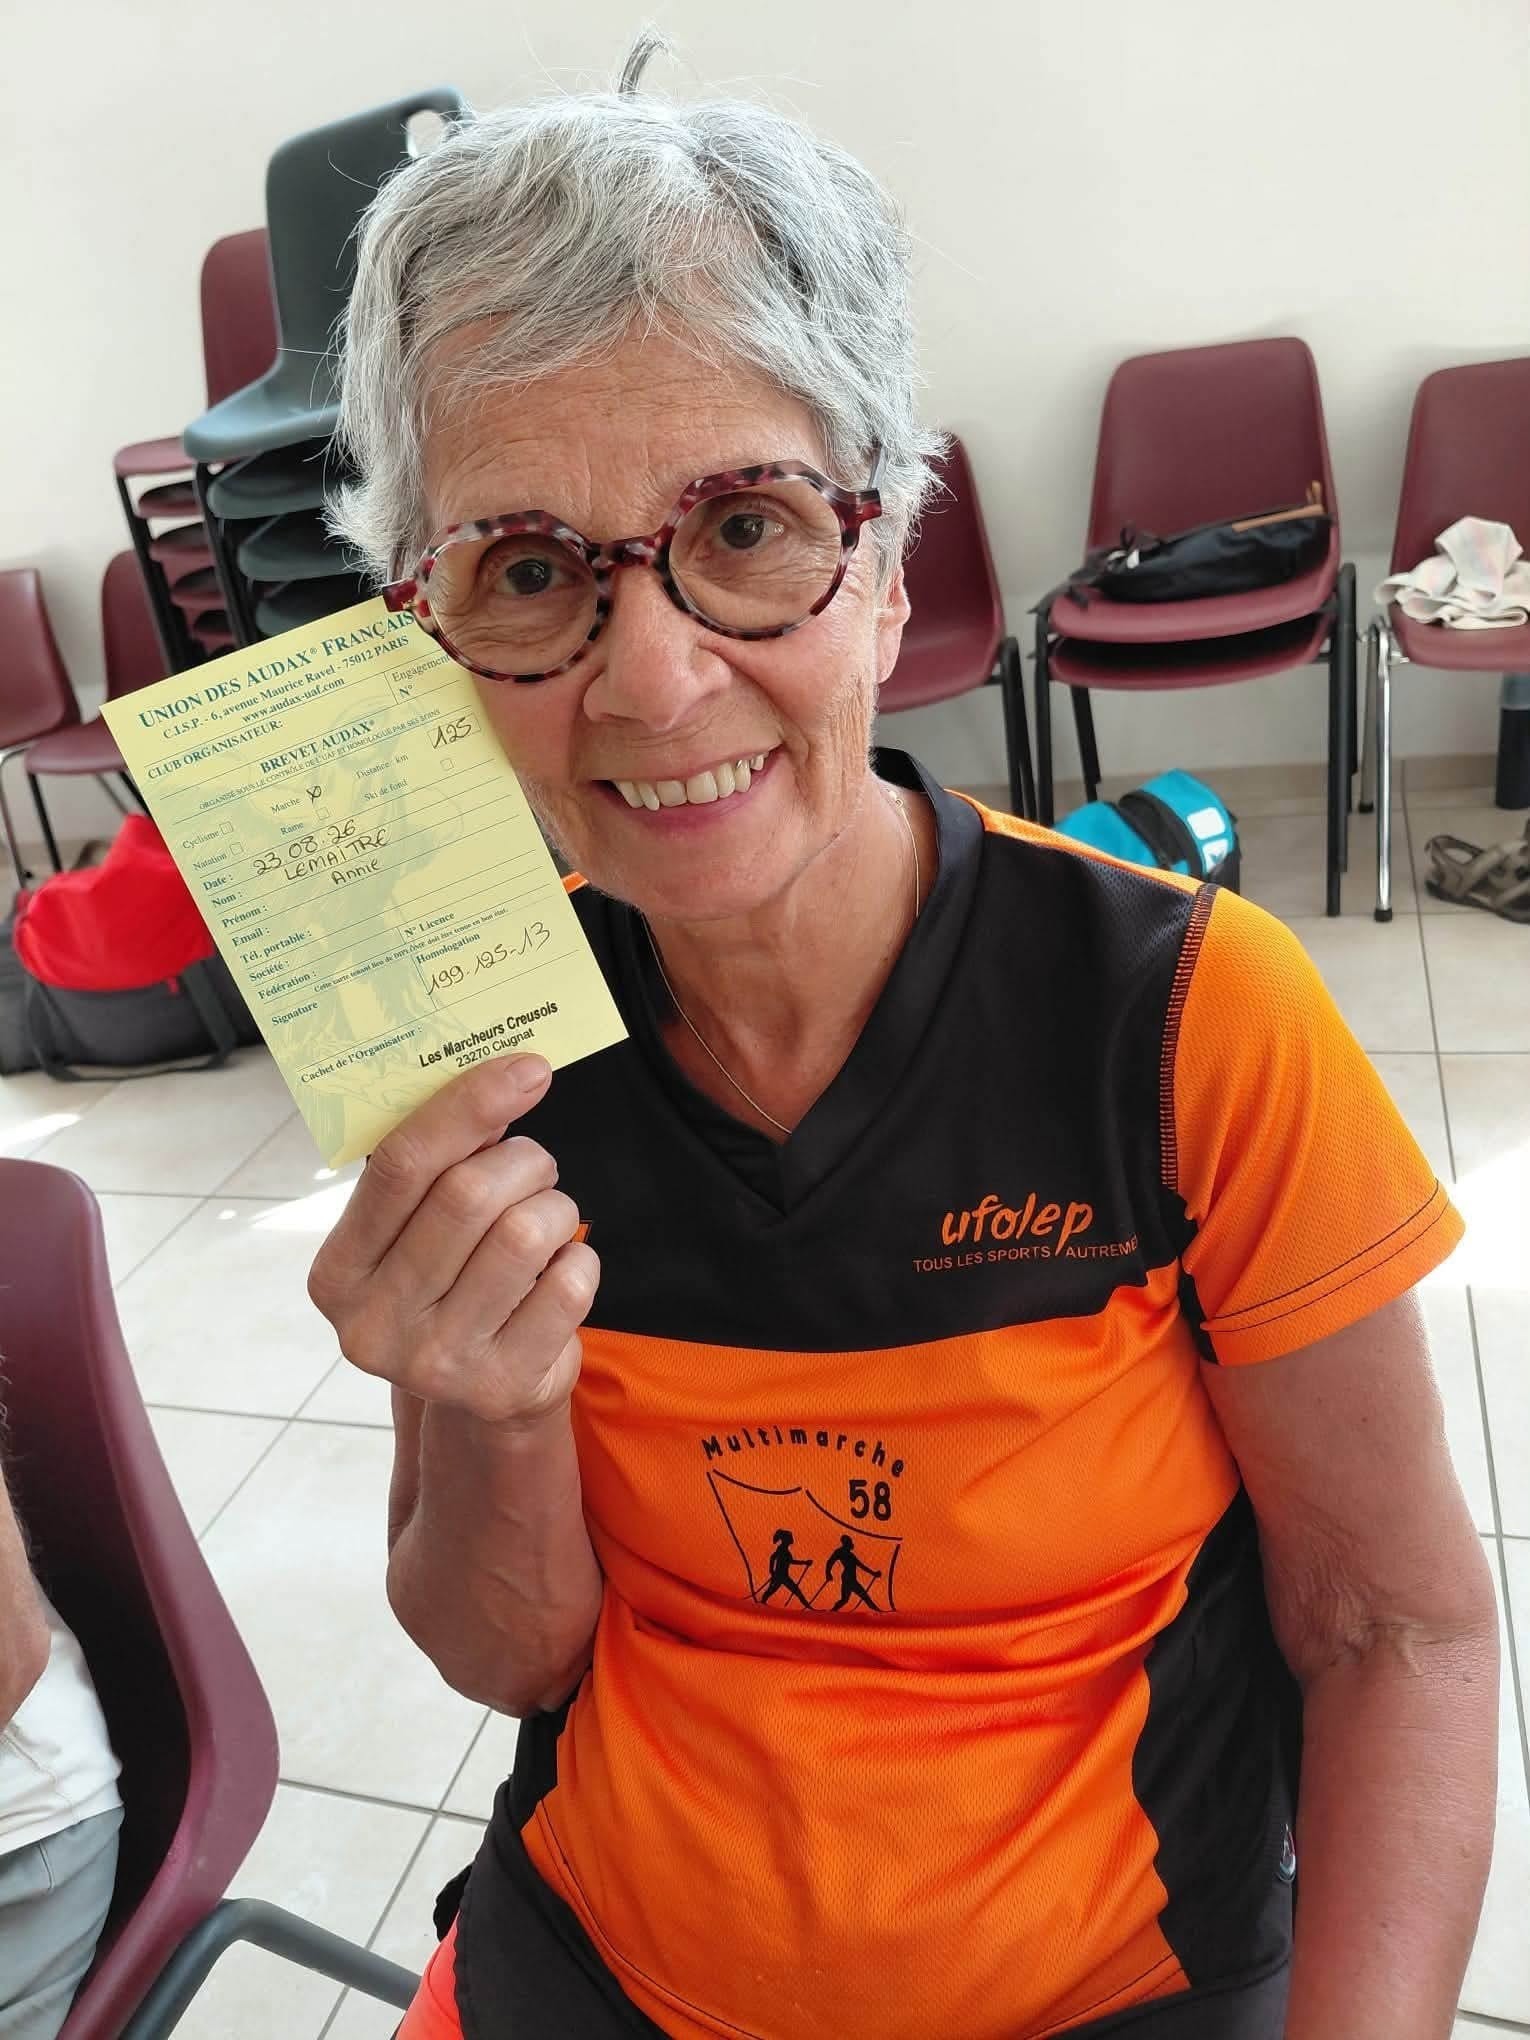 UNION DES AUDAX® FRANÇAIS
C.I.S.P. - 6, avenue Maurice Ravel - 75012 PARIS
www.audax-uaf.com
CLUB ORGANISATEUR:
Engagement
N°
BREVET AUDAX®
ORGANISÉ SOUS LE CONTRÔLE DE L'UAF ET HOMOLOGUÉ PAR SES SOINS
Distance : km 125
Cyclisme Marche Ski de fond
Natation Rame
Date : 23.08.26
Nom : LEMAITRE
Prénom : Annie
Email :
Tél. portable :
Société : N° Licence
Fédération :
Cette carte tenant lieu de DIPLÔME doit être tenue en bon état.
Signature Homologation
199-125-13
Cachet de l'Organisateur :
Les Marcheurs Creusois
23270 Clugnat
ufolep
TOUS LES SPORTS AUTREME
Multimarche
58